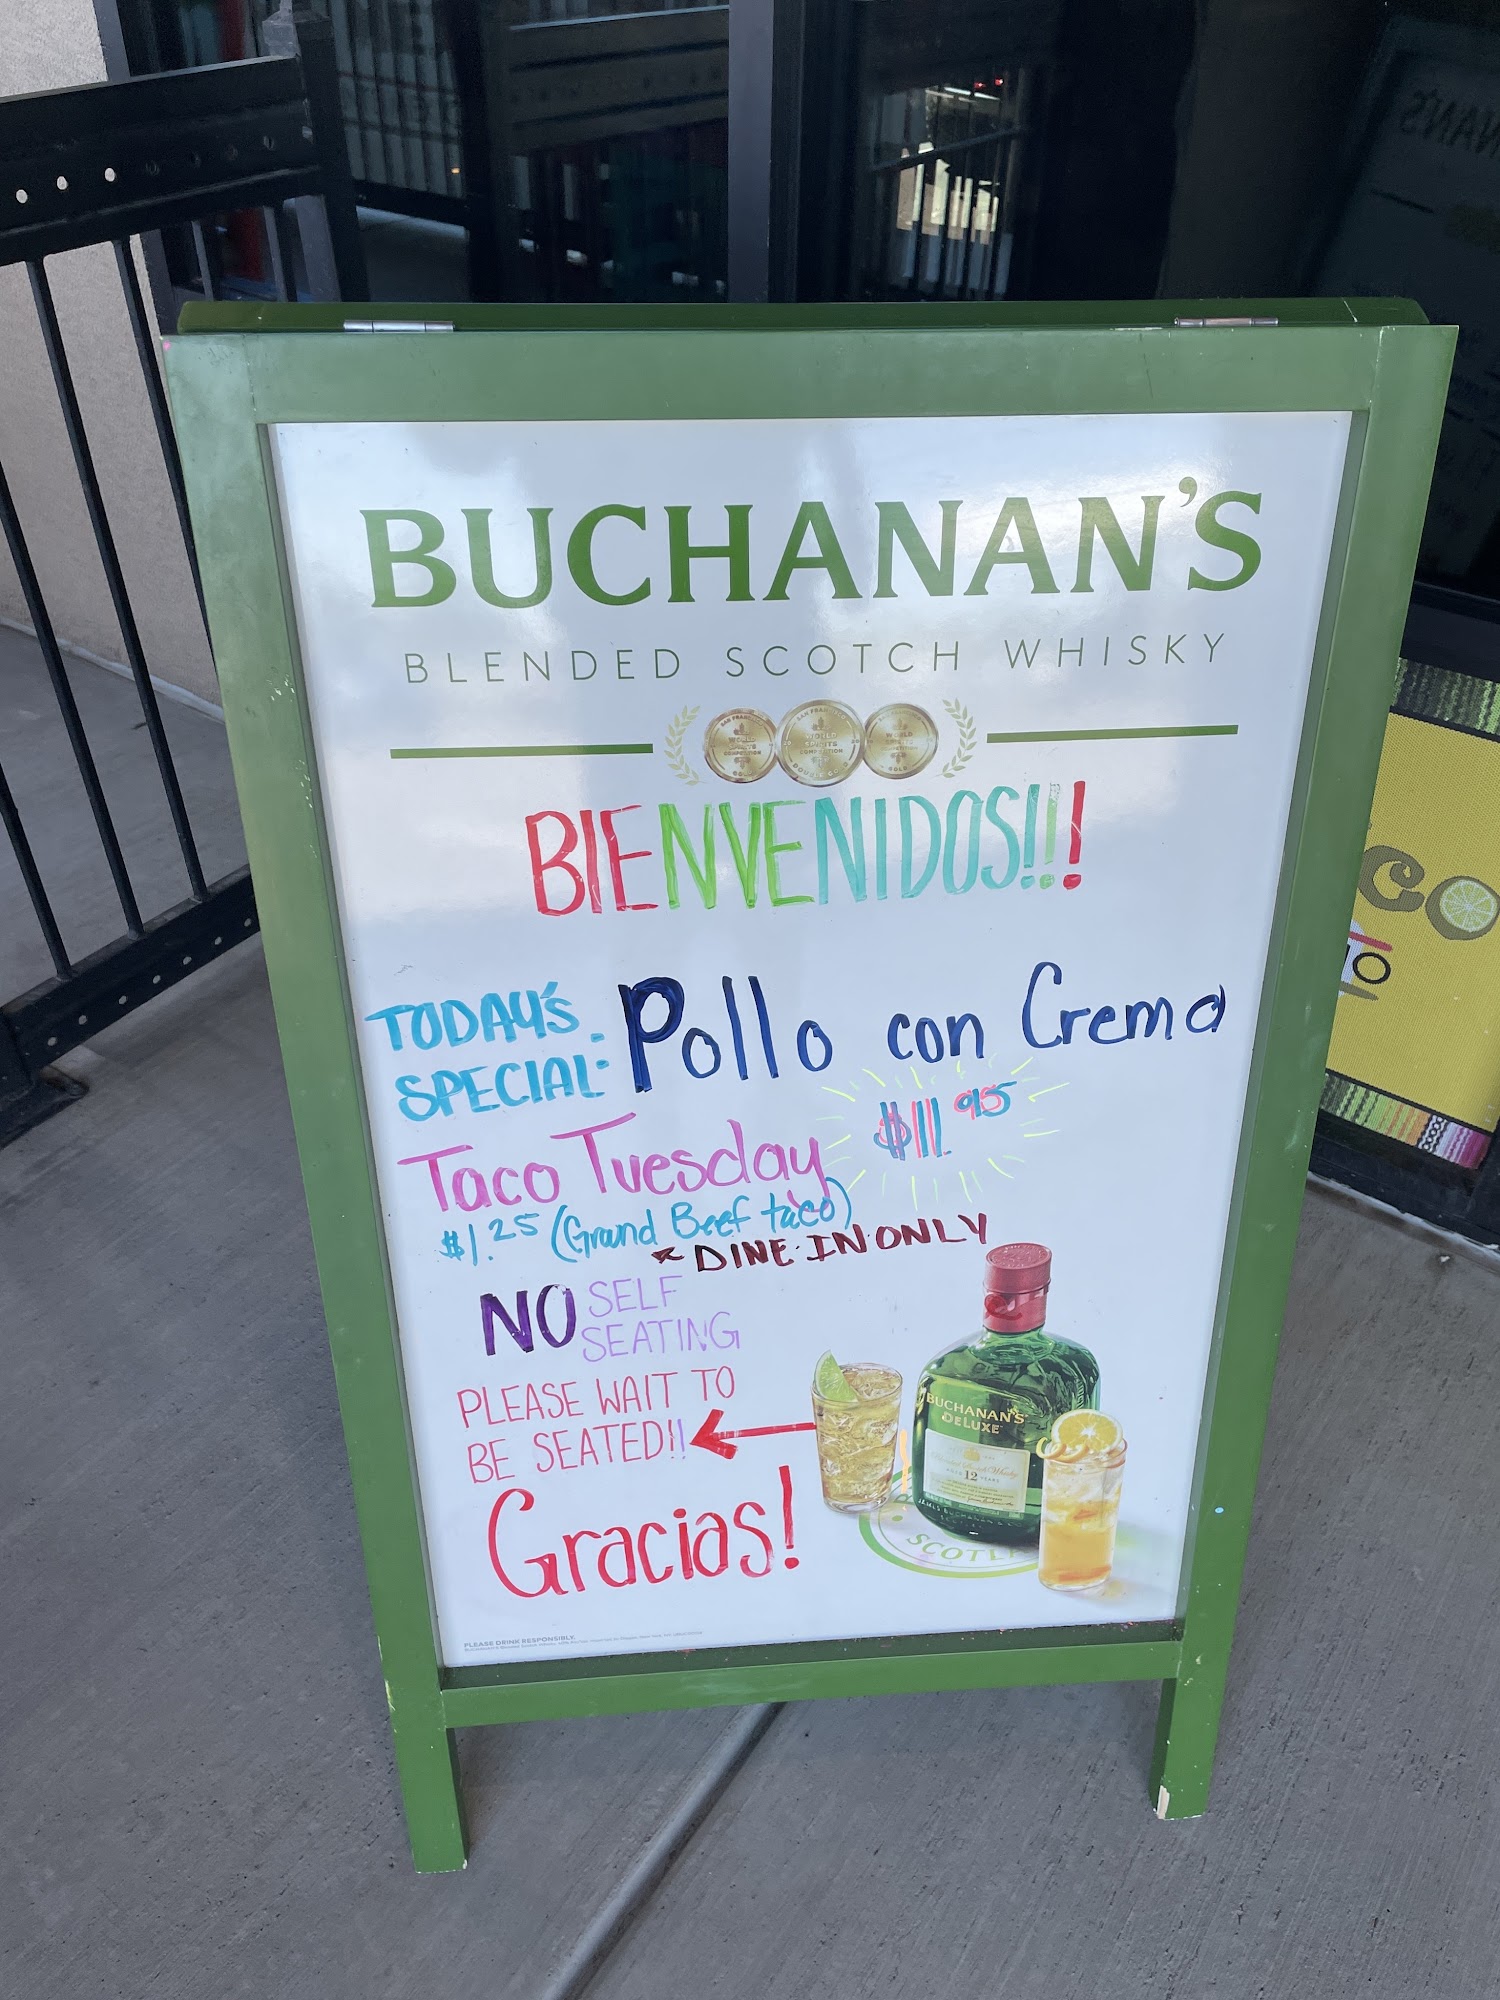 BUCHANAN'S
BLENDED SCOTCH WHISKY
WORLD SPIRITS COMPETITION
BIENVENIDOS!!!
TODAY'S SPECIAL: Pollo con Crema
$11.95
Taco Tuesday
$1.25 (Ground Beef taco)
DINE-IN-ONLY
NO SELF SEATING
PLEASE WAIT TO
BE SEATED!!
Gracias!
BUCHANAN'S
DELUXE
12
SCOTL
PLEASE DRINK RESPONSIBLY.
CO